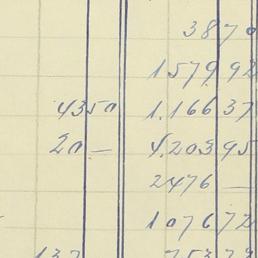 38 70
1579 92
43 50 1.166 37
20 — 4.203 95
2476 —
1076 72
137 753 79